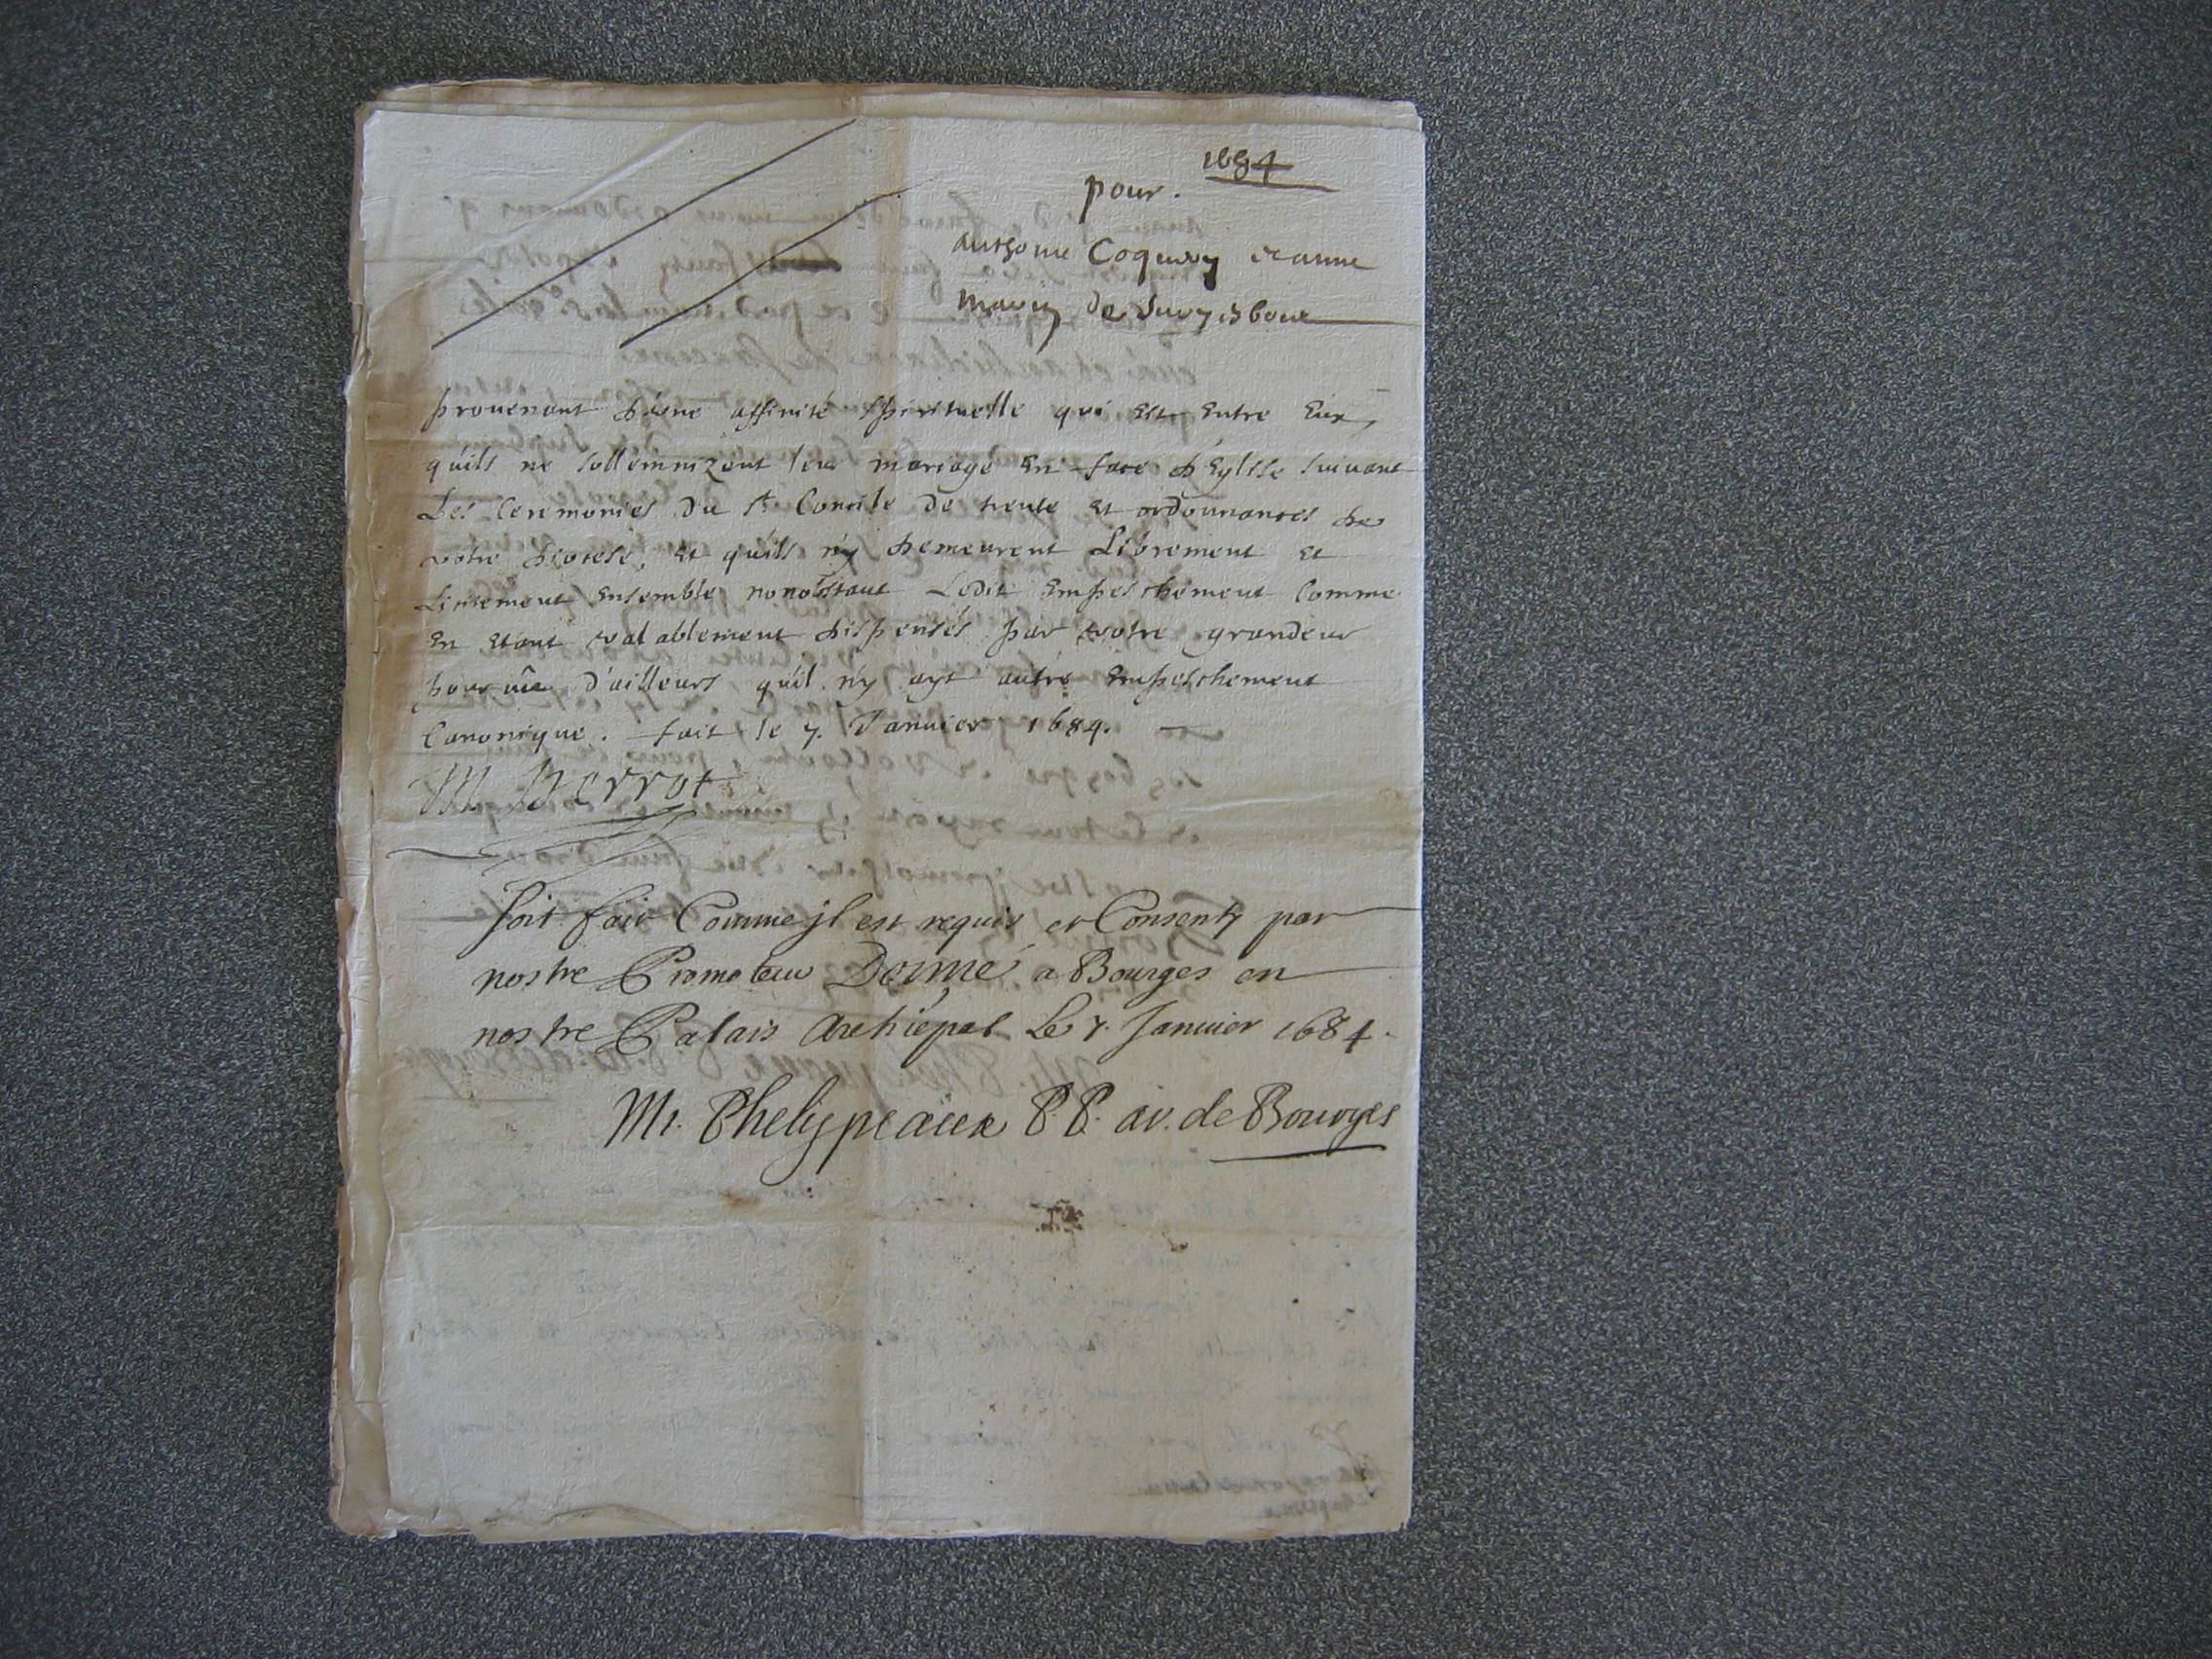 1684
pour.
anthoine Coquery et anne
mary de
provenant d'une affinité spirituelle qui est entre eux,
quils ne sollemnizent leur mariage en face d'Eglise suivant
Les Ceremonies du st Concile de trente et ordonnances de
votre diocese, et quils n'y demeurent Librement et
Licitement ensemble nonobstant Ledit empeschement Comme
en etant valablement dispensés par votre grandeur
pourvüe d'ailleurs qu'il n'y ayt autre empeschement
Canonique. fait le 7. Janvier 1684.
M. Perrot
Soit fait Comme jl est requis et Consenty par
nostre Promoteur Donné a Bourges en
nostre Palais Archiepal Le 7. Janvier 1684.
Mi. Phelypeaux P. P. ar. de Bourges